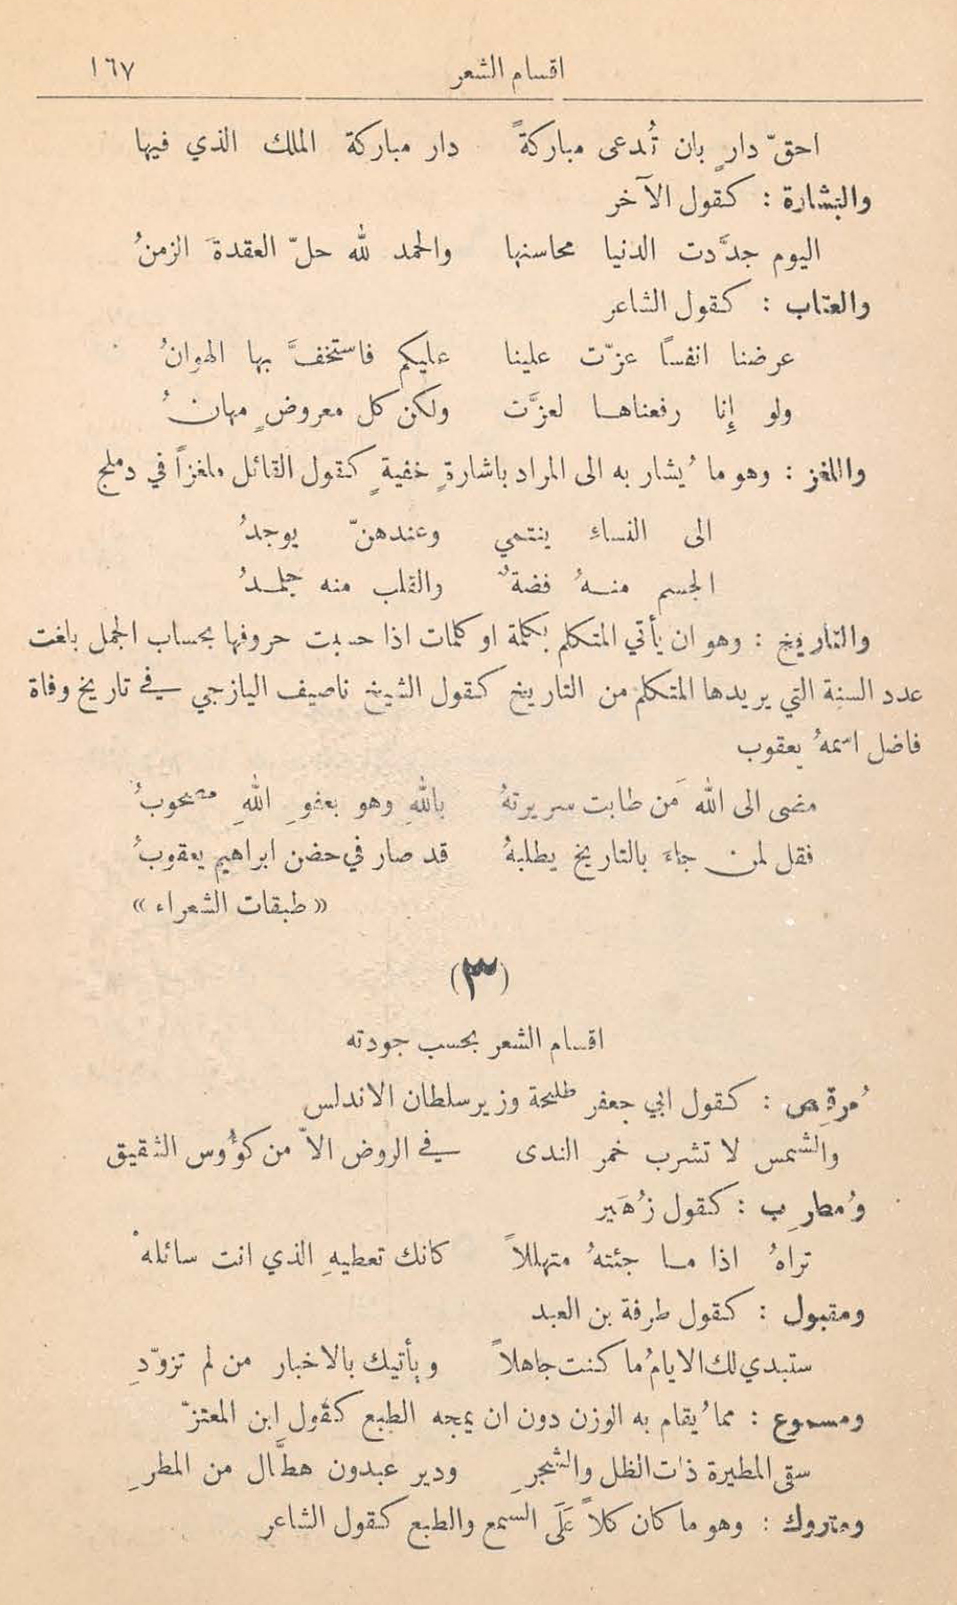 اقسام الشعر ١٦٧
احقّ دارٍ بان تُدعى مباركةً دار مباركة الملك الذي فيها
والبشارة : كقول الآخر
اليوم جدَّدت الدنيا محاسنها والحمد لله حلّ العقدةَ الزمنُ
والعتاب : كقول الشاعر
عرضنا انفسًا عزّت علينا عليكم فاستخفَّ بها الهوانُ
ولو إنا رفعناها لعزَّت ولكن كل معروضٍ مهانُ
واللغز : وهو ما يُشار به الى المراد باشارةٍ خفيةٍ كقول القائل ملغزاً في دملج
الى النساءِ ينتمي وعندهنّ يوجدُ
الجسم منهُ فضةٌ والقلب منه جلمدُ
والتاريخ : وهو ان يأتي المتكلم بكلمة او كلمات اذا حسبت حروفها بحساب الجمل بلغت
عدد السنة التي يريدها المتكلم من التاريخ كقول الشيخ ناصيف اليازجي في تاريخ وفاة
فاضل اسمهُ يعقوب
مضى الى الله مَن طابت سريرتهُ باللهِ وهو بعفوِ اللهِ مصحوبُ
فقل لمن جاءَ بالتاريخ يطلبهُ قد صار في حضن ابراهيم يعقوبُ
« طبقات الشعراء »
(٣)
اقسام الشعر بحسب جودته
مُرقِص : كقول ابي جعفر طلحة وزير سلطان الاندلس
والشمس لا تشرب خمر الندى في الروض الاّ من كؤُوس الشقيق
ومُطرِب : كقول زُهَير
تراهُ اذا ما جئتهُ متهللاً كانك تعطيهِ الذي انت سائلهْ
ومقبول : كقول طرفة بن العبد
ستبدي لك الايامُ ما كنت جاهلاً ويأتيك بالاخبار من لم تزوّدِ
ومسموع : مما يُقام به الوزن دون ان يمجه الطبع كقول ابن المعتزّ
سقى المطيرة ذات الظل والشجرِ ودير عبدون هطَّال من المطرِ
ومتروك : وهو ما كان كلاًّ عَلَى السمع والطبع كقول الشاعر